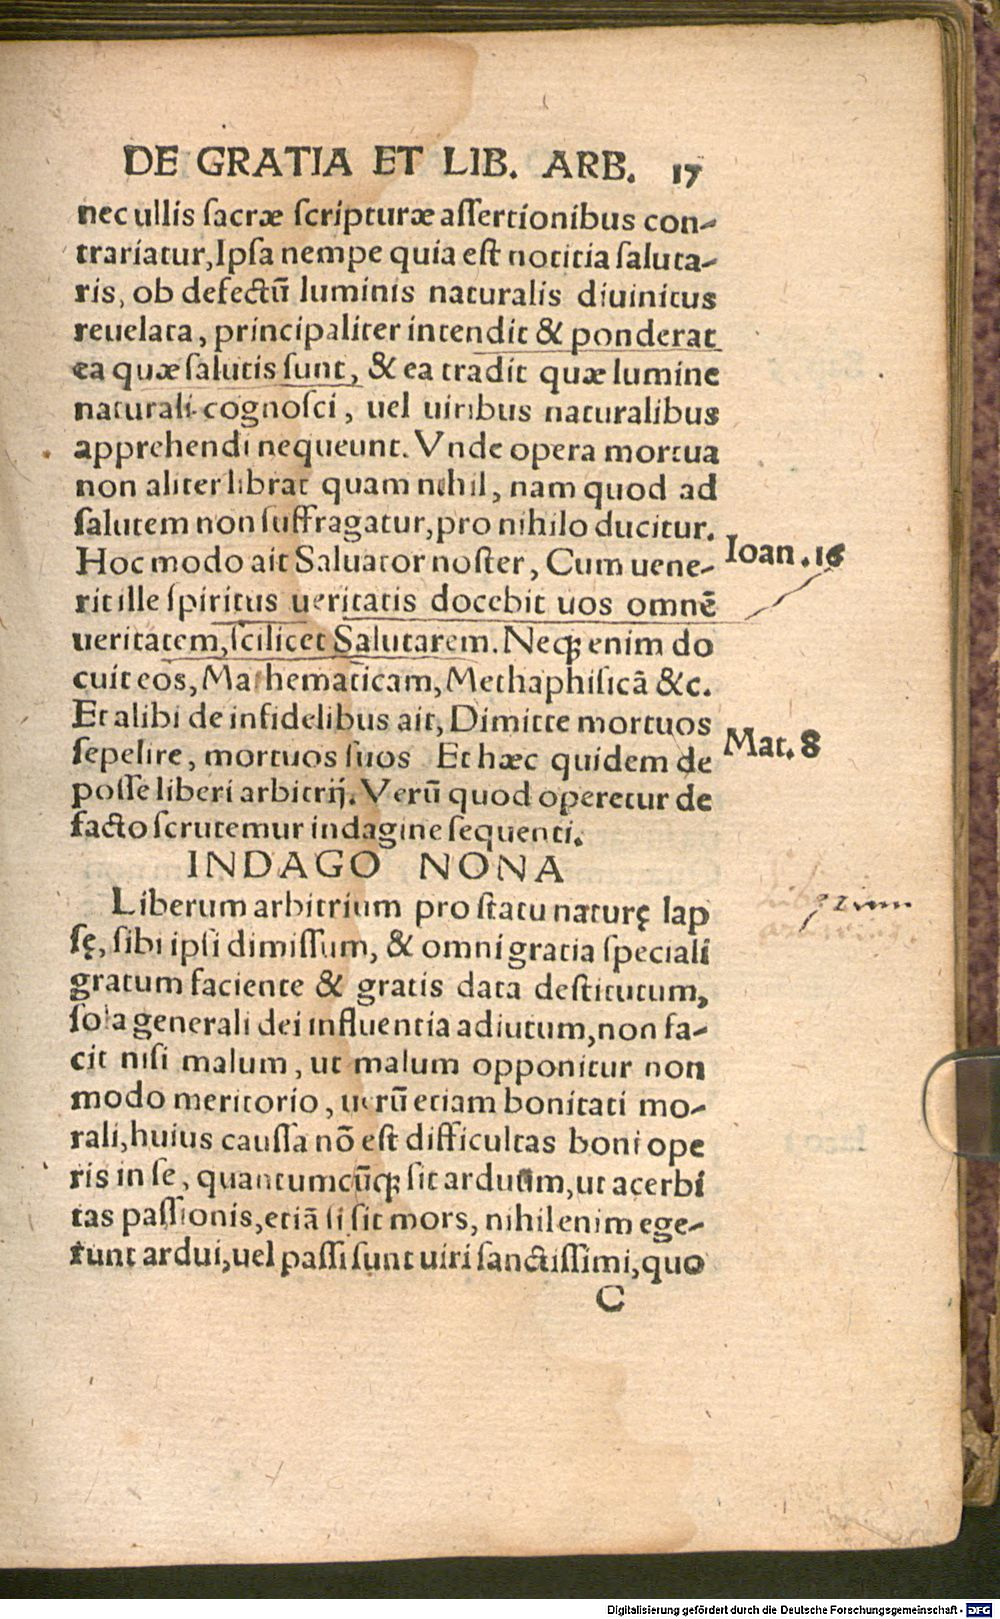 DE GRATIA ET LIB. ARB. 17
nec ullis ſacræ ſcripturæ aſſertionibus con-
trariatur, Ipſa nempe quia eſt notitia ſaluta-
ris, ob defectū luminis naturalis diuinitus
reuelata, principaliter intendit & ponderat
ea quæ ſalutis ſunt, & ea tradit quæ lumine
naturali cognoſci, uel uiribus naturalibus
apprehendi nequeunt. Vnde opera mortua
non aliter librat quam nihil, nam quod ad
ſalutem non ſuffragatur, pro nihilo ducitur.
Hoc modo ait Saluator noſter, Cum uene-
Ioan. 16
rit ille ſpiritus ueritatis docebit uos omnē
ueritatem, ſcilicet Salutarem. Neqꝫ enim do
cuit eos, Mathematicam, Methaphiſicā &c.
Et alibi de infidelibus ait, Dimitte mortuos
Mat. 8
ſepelire, mortuos ſuos Et hæc quidem de
poſſe liberi arbitrij. Verū quod operetur de
facto ſcrutemur indagine ſequenti.
INDAGO NONA
Liberum arbitrium pro ſtatu naturę lap
ſę, ſibi ipſi dimiſſum, & omni gratia ſpeciali
gratum faciente & gratis data deſtitutum,
ſola generali dei influentia adiutum, non fa-
cit niſi malum, ut malum opponitur non
modo meritorio, uerū etiam bonitati mo-
rali, huius cauſſa nō eſt difficultas boni ope
ris in ſe, quantumcūqꝫ ſit arduum, ut acerbi
tas paſſionis, etiā ſi ſit mors, nihil enim ege-
runt ardui, uel paſſi ſunt uiri ſanctiſſimi, quo
C
Digitalisierung gefördert durch die Deutsche Forschungsgemeinschaft - DFG